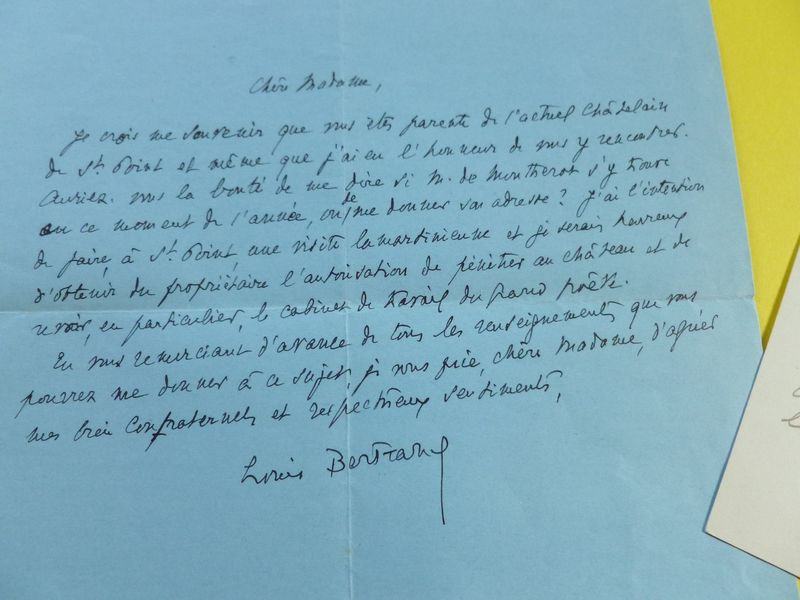 Chère Madame,
Je crois me souvenir que vous êtes parente de l'actuel châtelain
de St. Point et même que j'ai eu l'honneur de vous y rencontrer.
Auriez-vous la bonté de me dire si M. de Montherot s'y trouve
en ce moment de l'année, ou de me donner son adresse ? J'ai l'intention
de faire, à St. Point, une visite lamartinienne et je serais heureux
d'obtenir du propriétaire l'autorisation de pénétrer au château et de
revoir, en particulier, le cabinet de travail du grand poète.
En vous remerciant d'avance de tous les renseignements que vous
pourrez me donner à ce sujet, je vous prie, chère Madame, d'agréer
mes bien confraternels et respectueux sentiments,
Louis Bertrand